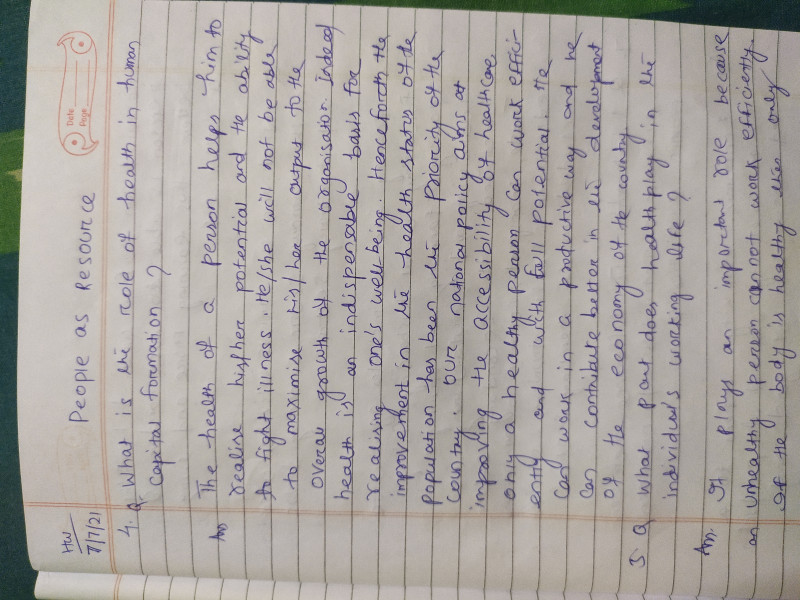 HW
7/7/21
Date
Page
People as Resource
4. Q. What is the role of health in human
capital formation ?
Ans The health of a person helps him to
realise his/her potential and the ability
to fight illness. He/she will not be able
to maximise his/her output to the
overall growth of the organisation. Indeed
health is an indispensable basis for
realising one's well-being. Henceforth the
improvement in the health status of the
population has been the priority of the
country. Our national policy aims at
improving the accessibility of healthcare.
Only a healthy person can work effici-
ently and with full potential. He
can work in a productive way and he
can contribute better in the development
of the economy of the country
5 Q What part does health play in the
individual's working life ?
Ans. It plays an important role because
an unhealthy person cannot work efficiently.
If the body is healthy then only